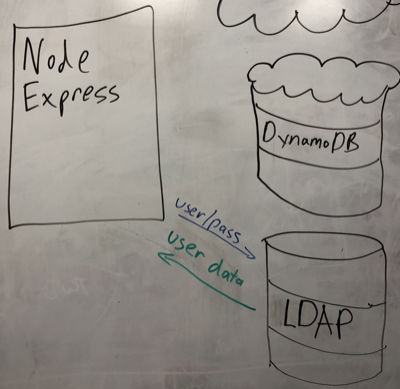 Node
Express
DynamoDB
user/pass
user data
LDAP